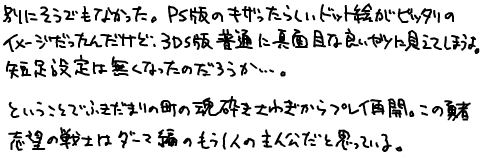 別にそうでもなかった。PS版のキザったらしいドット絵がピッタリの
イメージだったんだけど、3DS版普通に真面目な良いヤツに見えてしまうよ。
短足設定は無くなったのだろうか…。
ということでふきだまりの町の魂砕き大わざからプレイ再開。この勇者
志望の戦士はダーマ編のもう1人の主人公だと思っている。